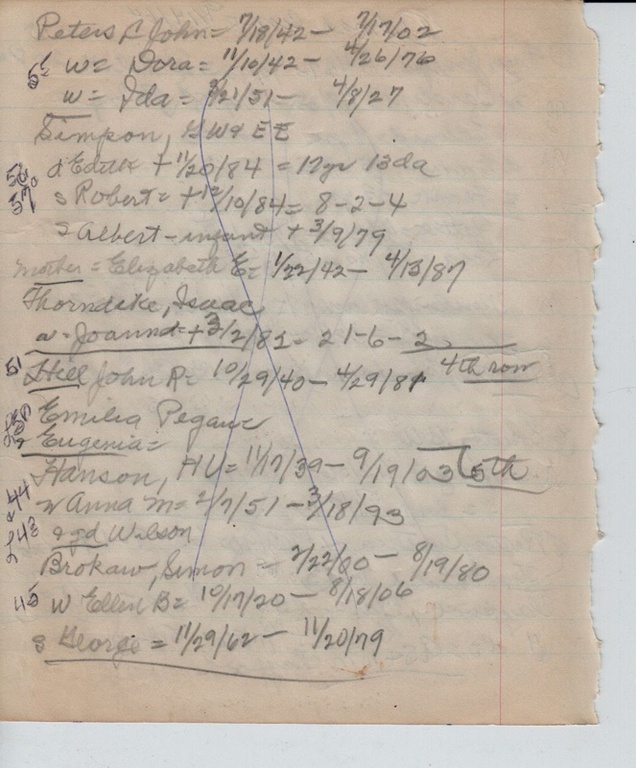 Peters L John = 7/18/42 - 7/17/02
55 w = Dora = 11/10/42 - 4/26/76
w = Ida = 3/21/51 - 4/8/27
Simpson, G W & E E
56 d Edith + 11/20/84 = 17yr 13da
57 s Robert = + 12/10/84 = 8-2-4
s Albert - infant + 3/9/79
mother = Elizabeth E = 1/22/42 - 4/13/87
Thorndike, Isaac
w - Joanna = + 3/2/81 = 21-6-2
4th row
51 Hill John R = 10/29/40 - 4/29/81
Emilia Pegau
& Eugenia =
Hanson, H U = 11/17/39 - 9/19/03 5th
44 w Anna M = 2/7/51 - 3/18/93
43 & gd Wilson
Brokaw, Simon = 2/22/00 - 8/19/80
45 w Ellen B = 10/17/20 - 8/18/06
s George = 11/29/62 - 11/20/79